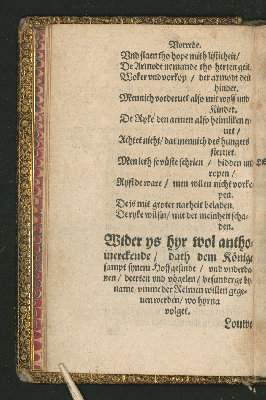 Vorrede.
Vnd slaen tho hope mith listicheit/
De Armodt nemande tho herten geit.
Woker vnd vorkop / der armodt deit
hinder.
Mennich vorderuet also mit wyff vnd
Kinder.
De Ryke den armen also heimliken er
Achtet nicht/ dat mennich des hungers
steruet.
Men leth se wüste schrien / bidden vnd
ropen /
Rysst de ware / men willen nicht vorko
pen.
De is mit groter narheit beladen.
De ryke wilsin/ mit der meinheit scha-
den.
Wider ys hyr wol antho-
merckende / dath dem Könige
sampt synem Hoffgesinde / vnd vnderda
nen / deerten vnd vögelen / besunderge by
name vmme der Rehmen willen gege-
uen werden/ wo hyrna
volget.
Louwe